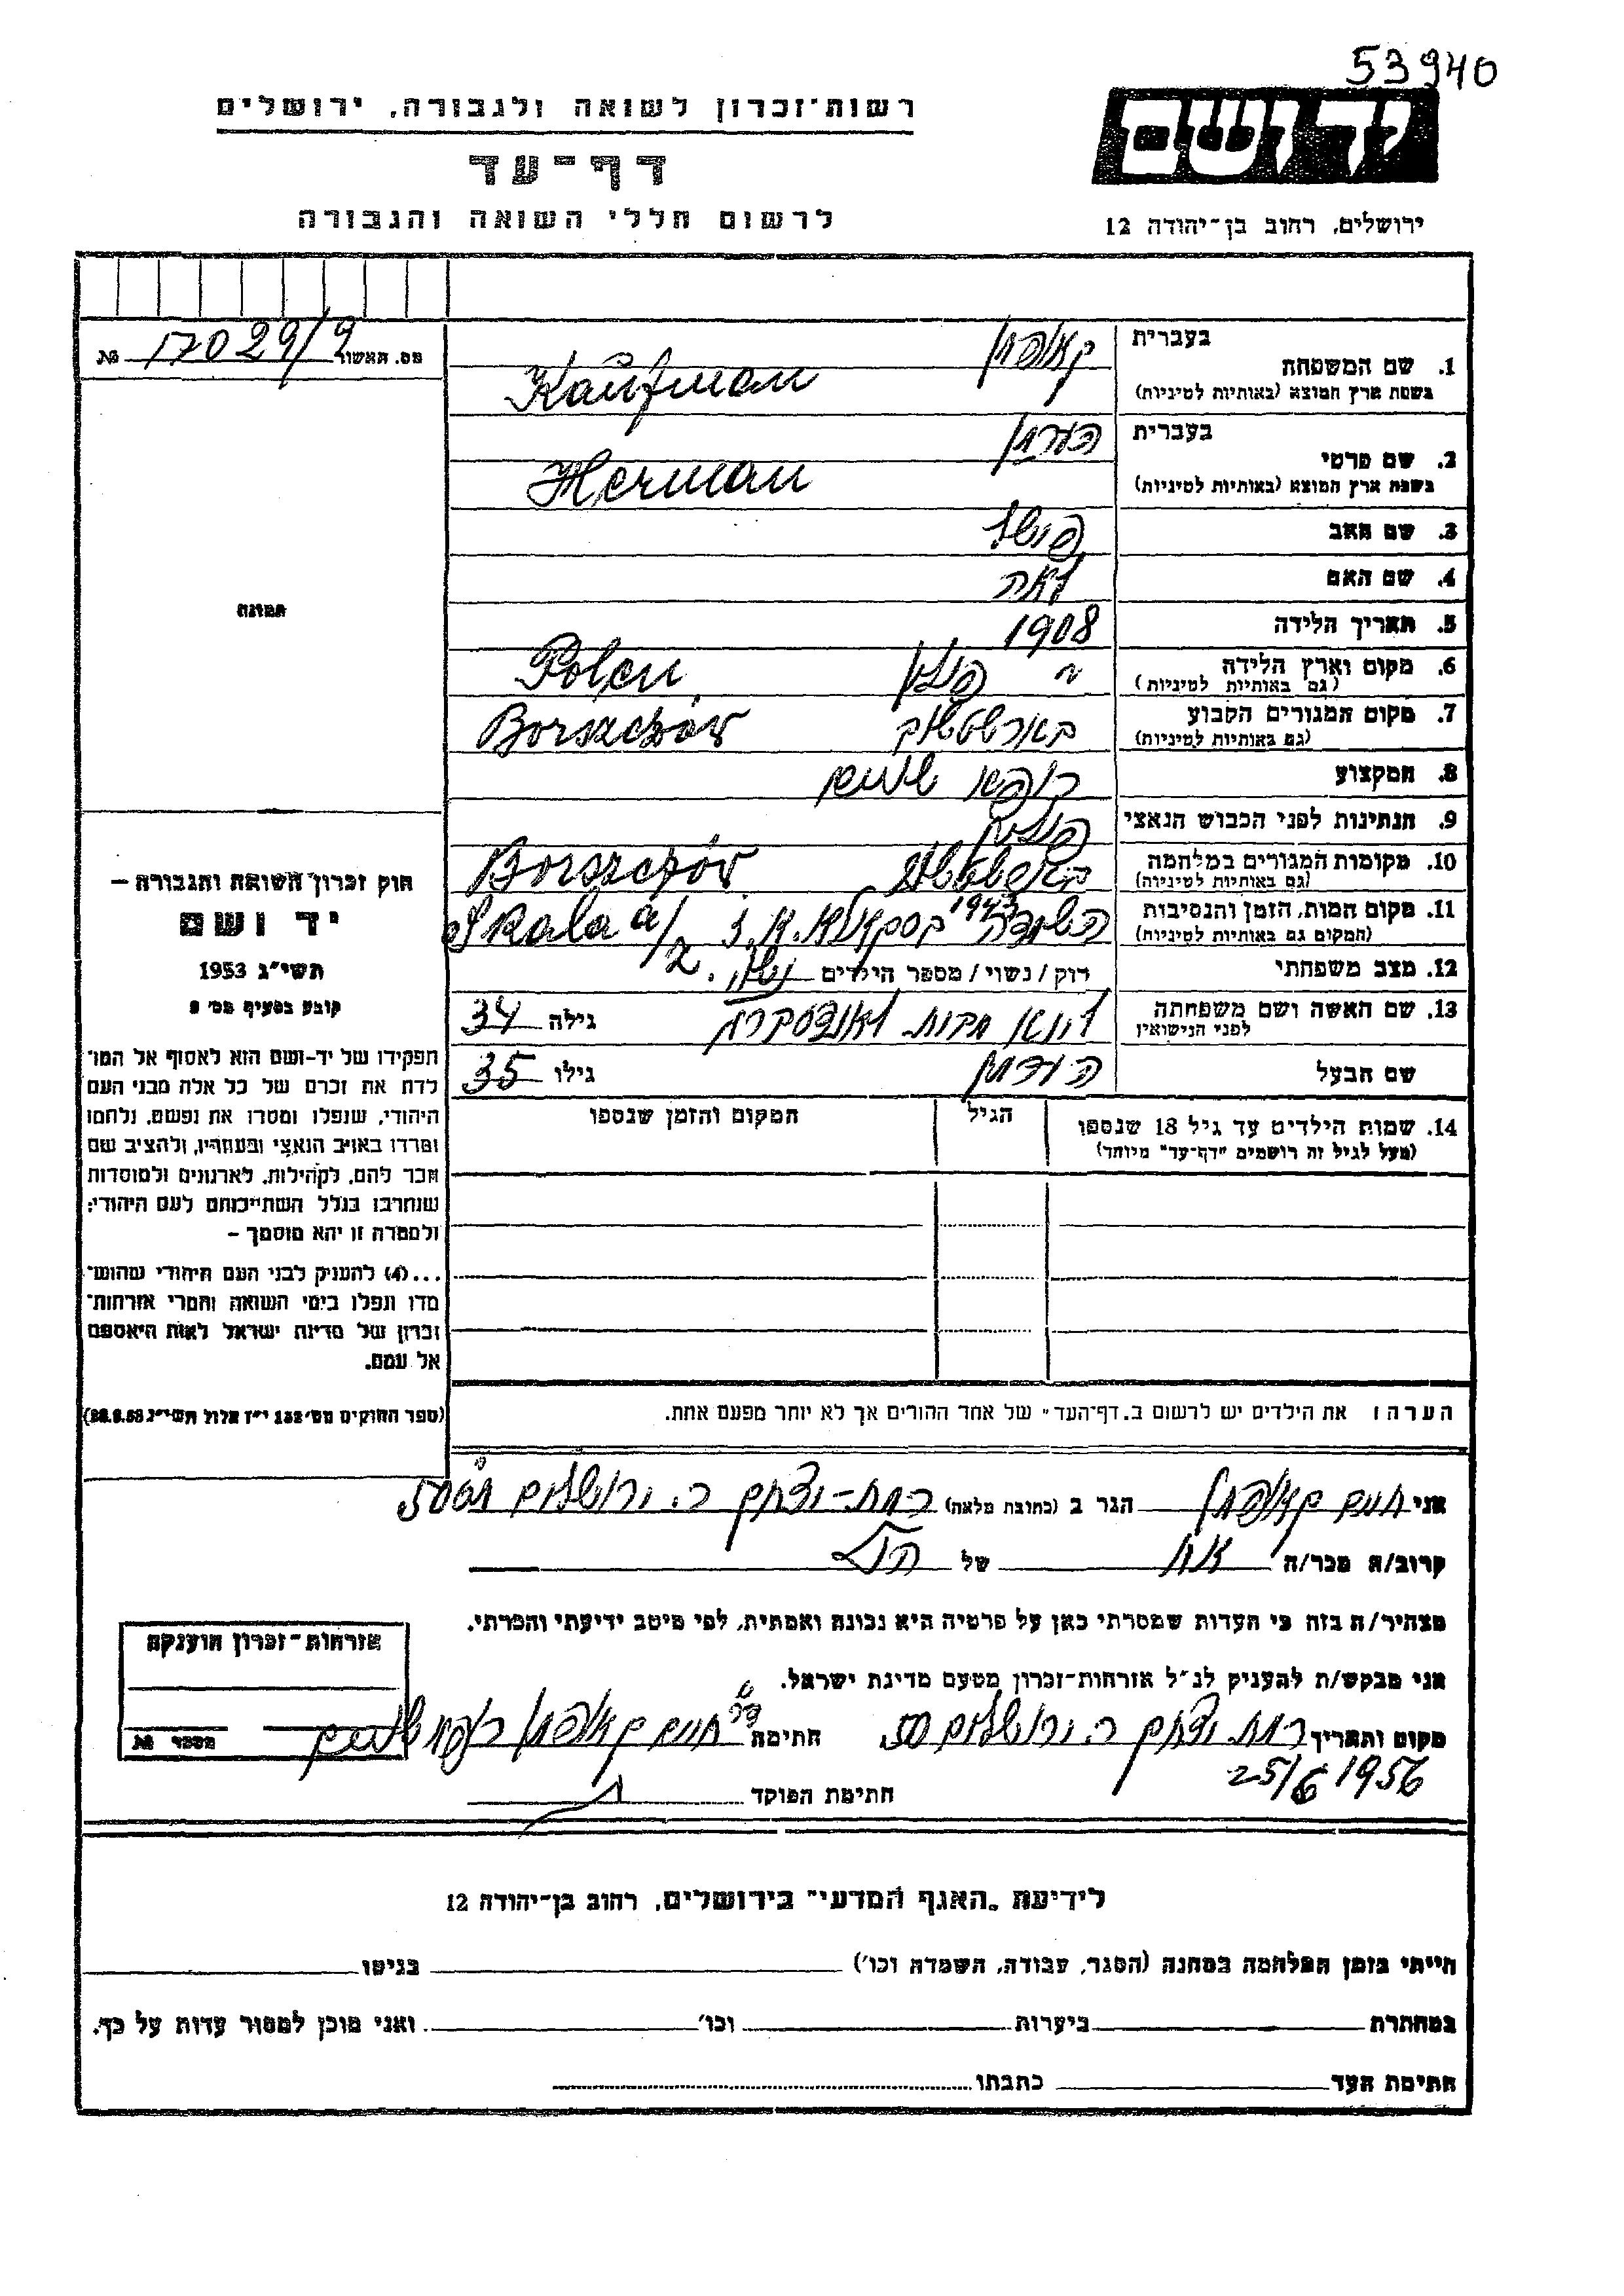 53940
רשות־זכרון לשואה ולגבורה, ירושלים
יד ושם
דף־עד
לרשום חללי השואה והגבורה
ירושלים, רחוב בן־יהודה 12
מס. תאשור 17029/9 №
תמונה
חוק זכרון השואה והגבורה –
יד ושם
תשי״ג 1953
קובע בסעיף מס׳ 2
תפקידו של יד-ושם הוא לאסוף אל המו־
לדת את זכרם של כל אלה מבני העם
היהודי, שנפלו ומסרו את נפשם, נלחמו
ומרדו באויב הנאצי ובעוזריו, ולהציב שם
וזכר להם, לקהילות, לארגונים ולמוסדות
שנחרבו בגלל השתייכותם לעם היהודי;
ולמטרה זו יהא מוסמך –
...(4) להעניק לבני העם היהודי שהוש־
מדו ונפלו בימי השואה והמרי אזרחות־
זכרון של מדינת ישראל לאות היאספם
אל עמם.
(ספר החוקים מס׳ 132 י״ז אלול תשי״ג 28.8.53)
בעברית קאופמן
1. שם המשפחה
בשפת ארץ המוצא (באותיות לטיניות) Kaufman
בעברית הערמן
2. שם פרטי
בשפת ארץ המוצא (באותיות לטיניות) Herman
3. שם האב פישל
4. שם האם לאה
5. תאריך הלידה 1908
6. מקום וארץ הלידה פולין Polen
(גם באותיות לטיניות)
7. מקום המגורים הקבוע בארשטשוב Borszczów
(גם באותיות לטיניות)
8. המקצוע רופא שינים
9. הנתינות לפני הכבוש הנאצי פולנית
10. מקומות המגורים במלחמה Borszczów
(גם באותיות לטיניות)
11. מקום המות, הזמן והנסיבות 1943 Skala a/z
(המקום גם באותיות לטיניות)
12. מצב משפחתי רוק / נשוי / מספר הילדים נשוי
13. שם האשה ושם משפחתה לפני הנישואין גילה 34
שם הבעל הערמן גילו 35
14. שמות הילדים עד גיל 18 שנספו הגיל המקום והזמן שנספו
(מעל לגיל זה רושמים "דף־עד" מיוחד)
הערה: את הילדים יש לרשום ב„דף־העד" של אחד ההורים אך לא יותר מפעם אחת.
אני חיים קאופמן הגר ב (כתובת מלאה) רמת-יצחק ר. ירושלים 50
קרוב/ה מכר/ה אח של הנ״ל
מצהיר/ה בזה כי העדות שמסרתי כאן על פרטיה היא נכונה ואמתית, לפי מיטב ידיעתי והכרתי.
אני מבקש/ת להעניק לנ״ל אזרחות-זכרון מטעם מדינת ישראל.
מקום ותאריך רמת יצחק ר. ירושלים 50 חתימה ד״ר חיים קאופמן רופא שינים
25/6 1956
חתימת הפוקד
אזרחות-זכרון הוענקה
מספר №
לידיעת „האגף המדעי" בירושלים, רחוב בן־יהודה 12
הייתי בזמן המלחמה במחנה (הסגר, עבודה, השמדה וכו׳) בגיטו
במחתרת ביערות וכו׳ ואני מוכן למסור עדות על כך.
חתימת העד כתבתו